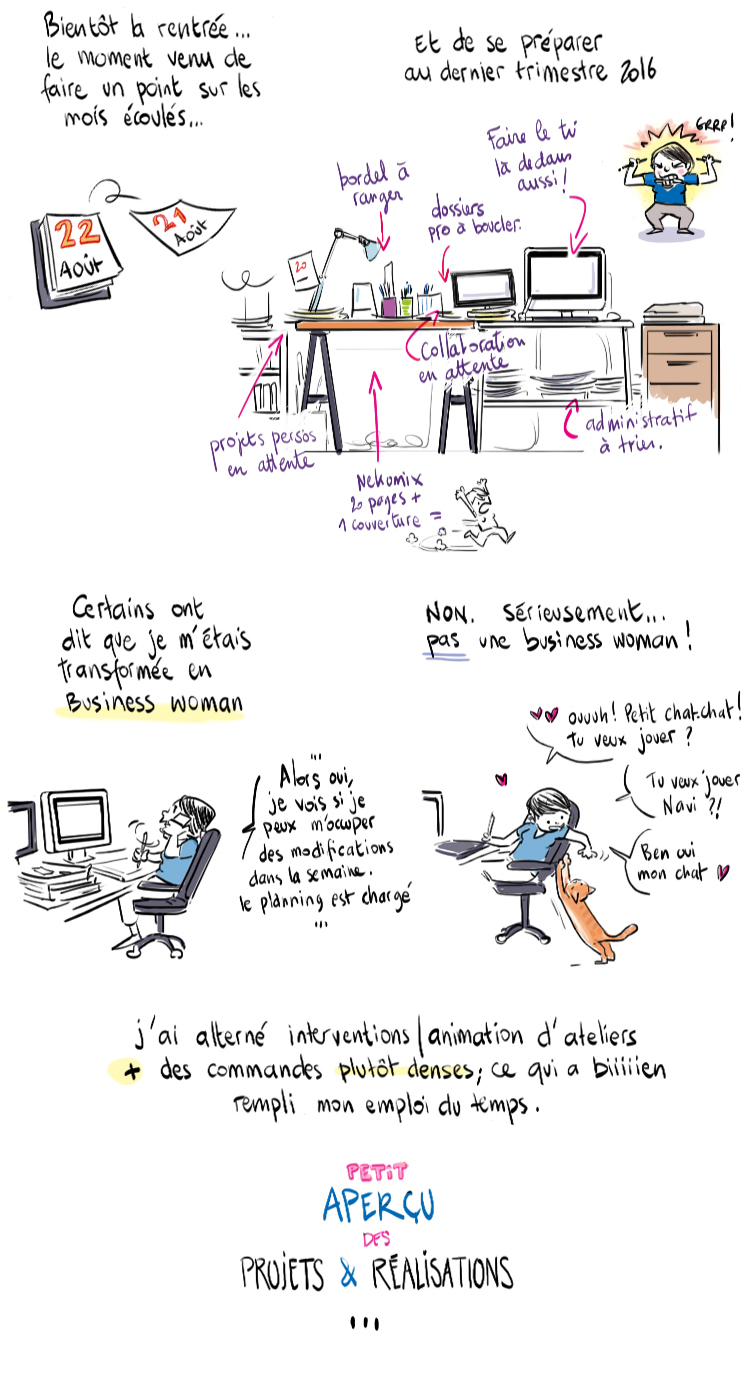 Bientôt la rentrée...
le moment venu de
faire un point sur les
mois écoulés...
Et de se préparer
au dernier trimestre 2016
GRRR!
22
Août
21
Août
20
bordel à
ranger
dossiers
pro à boucler.
Faire le tri
là dedans
aussi!
Collaboration
en attente
projets persos
en attente
Nekomix
20 pages +
1 couverture =
administratif
à trier.
Certains ont
dit que je m'étais
transformée en
Business woman
NON. Sérieusement...
pas une business woman!
...
Alors oui,
je vois si je
peux m'occuper
des modifications
dans la semaine.
le planning est chargé
...
ouuuh! Petit chat-chat!
Tu veux jouer ?
Tu veux jouer
Navi ?!
Ben oui
mon chat
j'ai alterné interventions/animation d'ateliers
+ des commandes plutôt denses; ce qui a biiiiien
rempli mon emploi du temps.
PETIT
APERÇU
DES
PROJETS & RÉALISATIONS
...